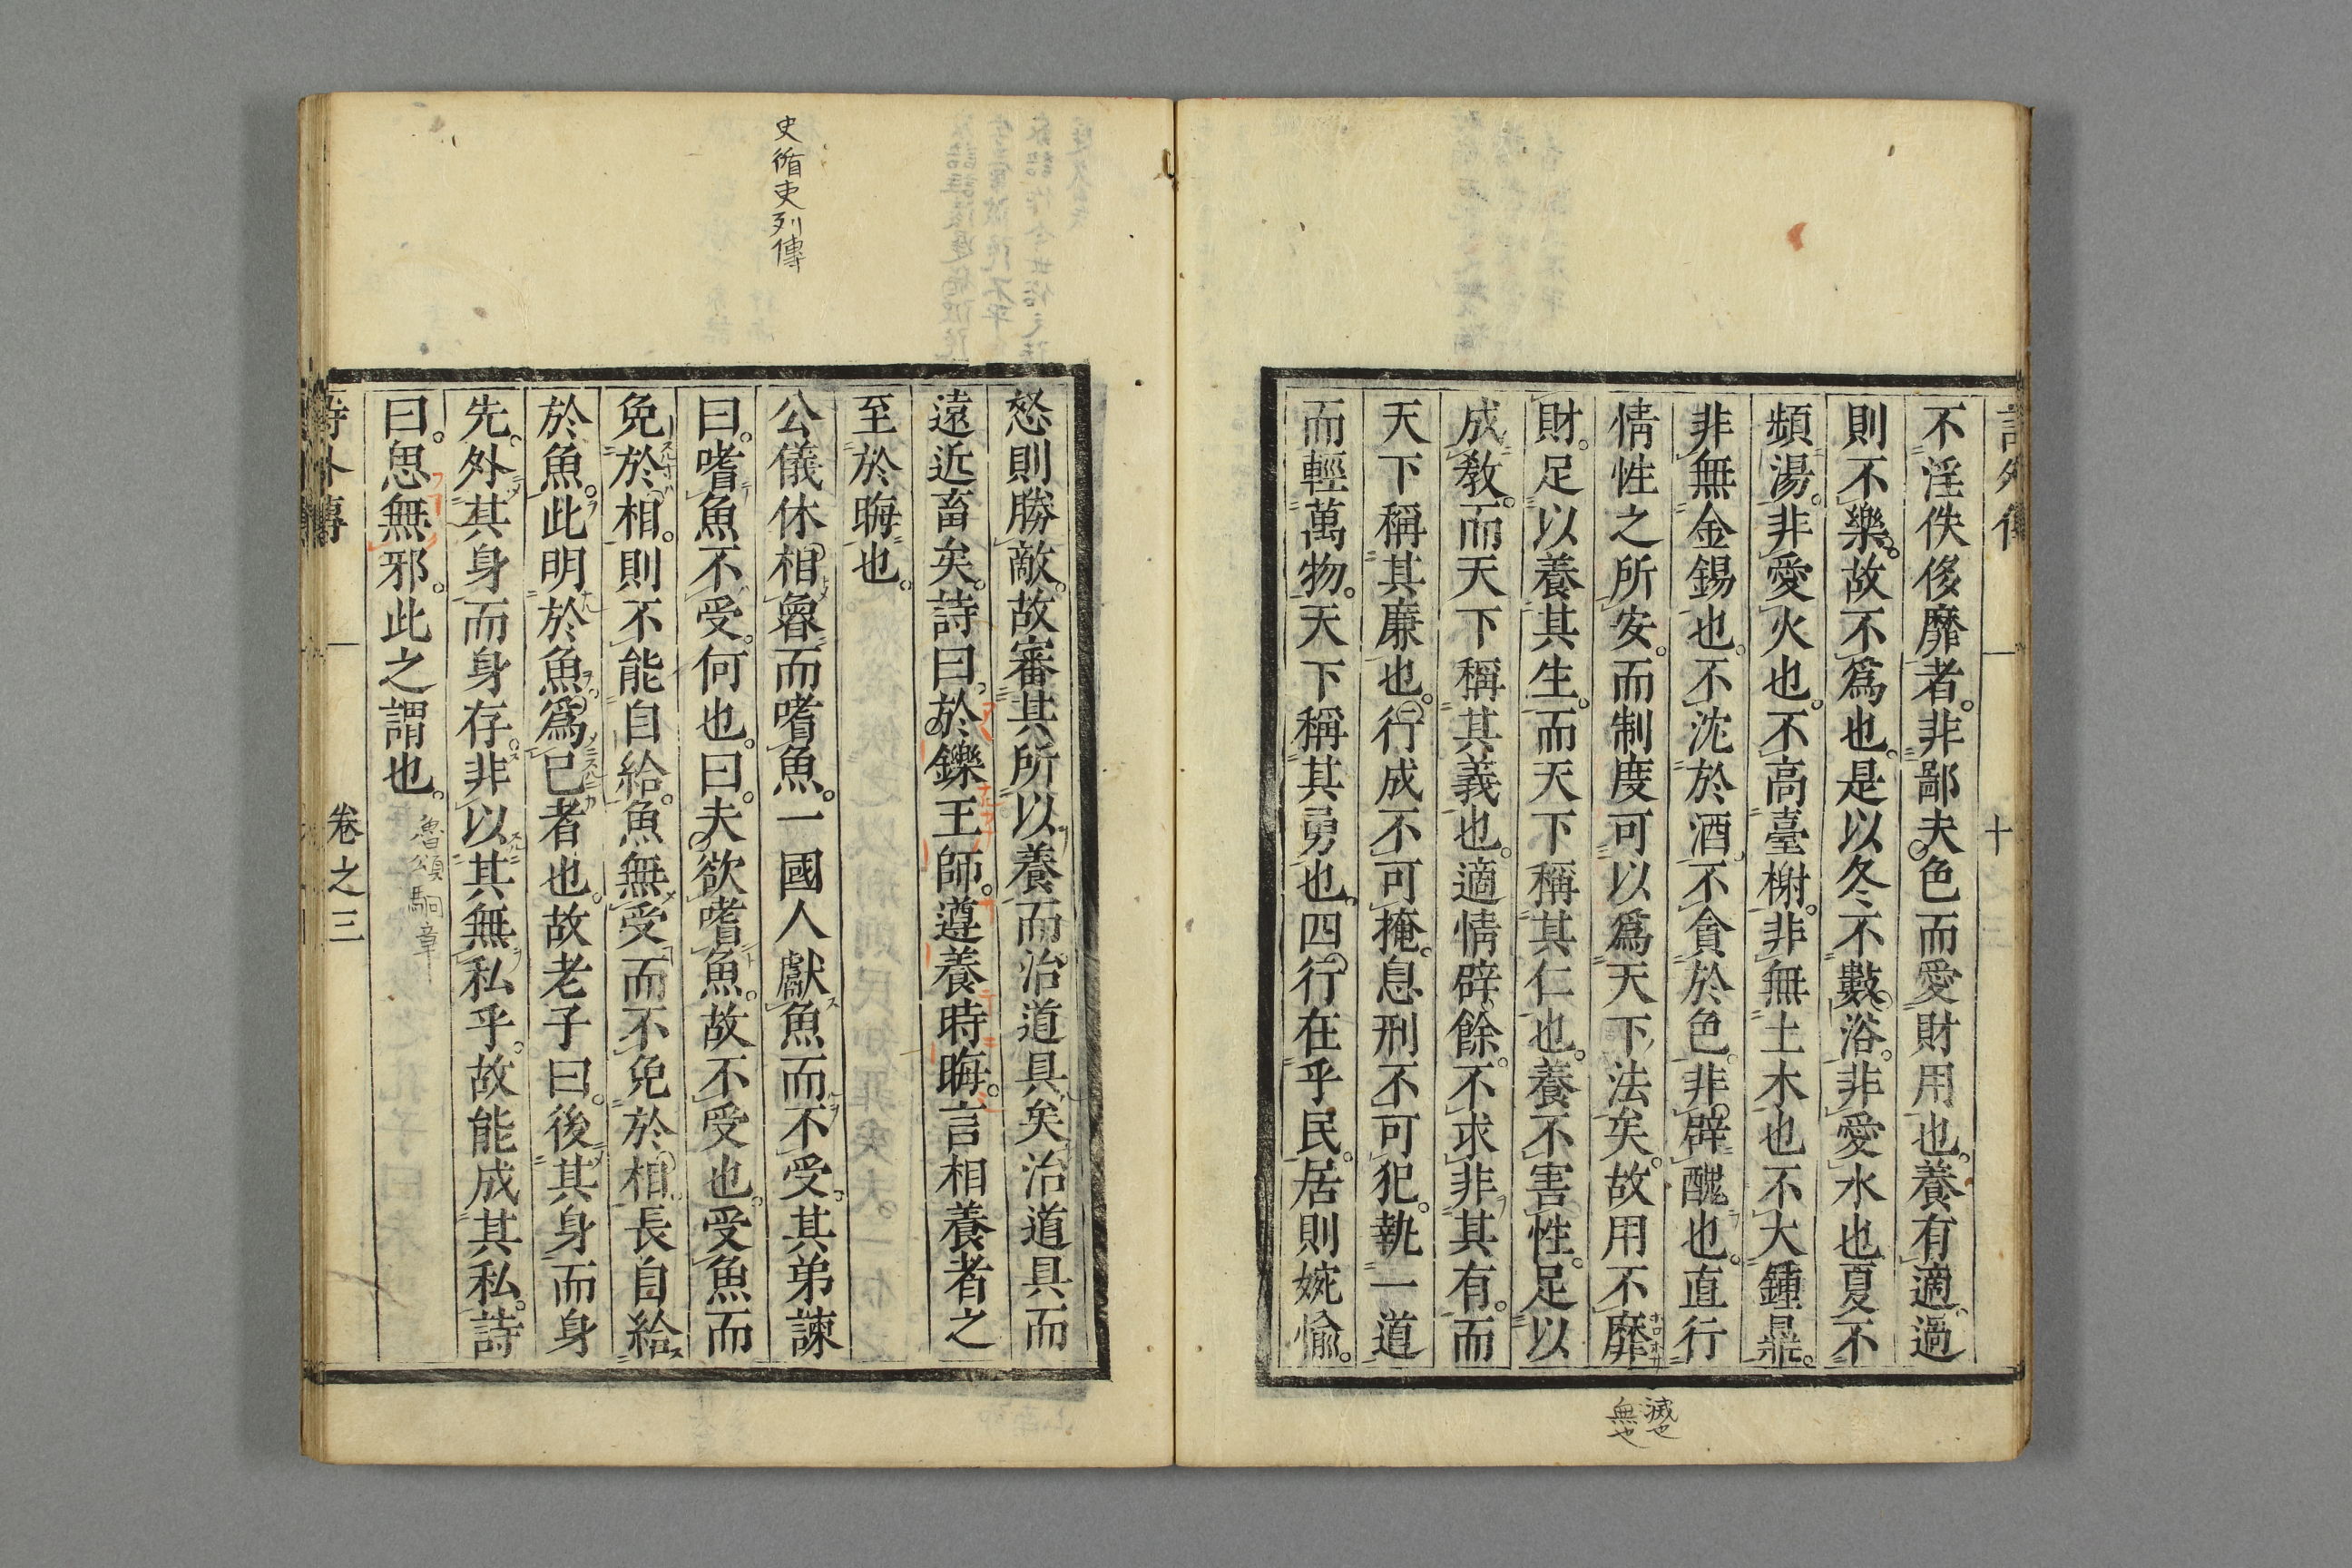 不淫佚侈靡者。非鄙夫色而愛財用也。養有適。過
則不樂。故不爲也。是以冬不數浴。非愛水也。夏不
頻湯。非愛火也。不高臺榭。非無土木也。不大鍾鼎。
非無金錫也。不沈於酒。不貪於色。非辟醜也。直行
情性之所安。而制度可以爲天下法矣。故用不靡
財。足以養其生。而天下稱其仁也。養不害性。足以
成教。而天下稱其義也。適情辟餘。不求非其有。而
天下稱其廉也。行成不可掩。息刑不可犯。執一道
而輕萬物。天下稱其勇也。四行在乎民。居則婉愉。
滅也
無也
十
史循吏列傳
怒則勝敵。故審其所以養而治道具矣治道具而
遠近畜矣。詩曰。於鑠王師。遵養時晦。言相養者之
至於晦也。
公儀休相魯而嗜魚。一國人獻魚而不受。其弟諫
曰。嗜魚不受。何也。曰。夫欲嗜魚。故不受也。受魚而
免於相。則不能自給。魚無受而不免於相。長自給
於魚。此明於魚。爲已者也。故老子曰。後其身而身
先。外其身而身存。非以其無私乎。故能成其私。詩
曰。思無邪。此之謂也。
魯頌駉章
詩外傳
卷之三